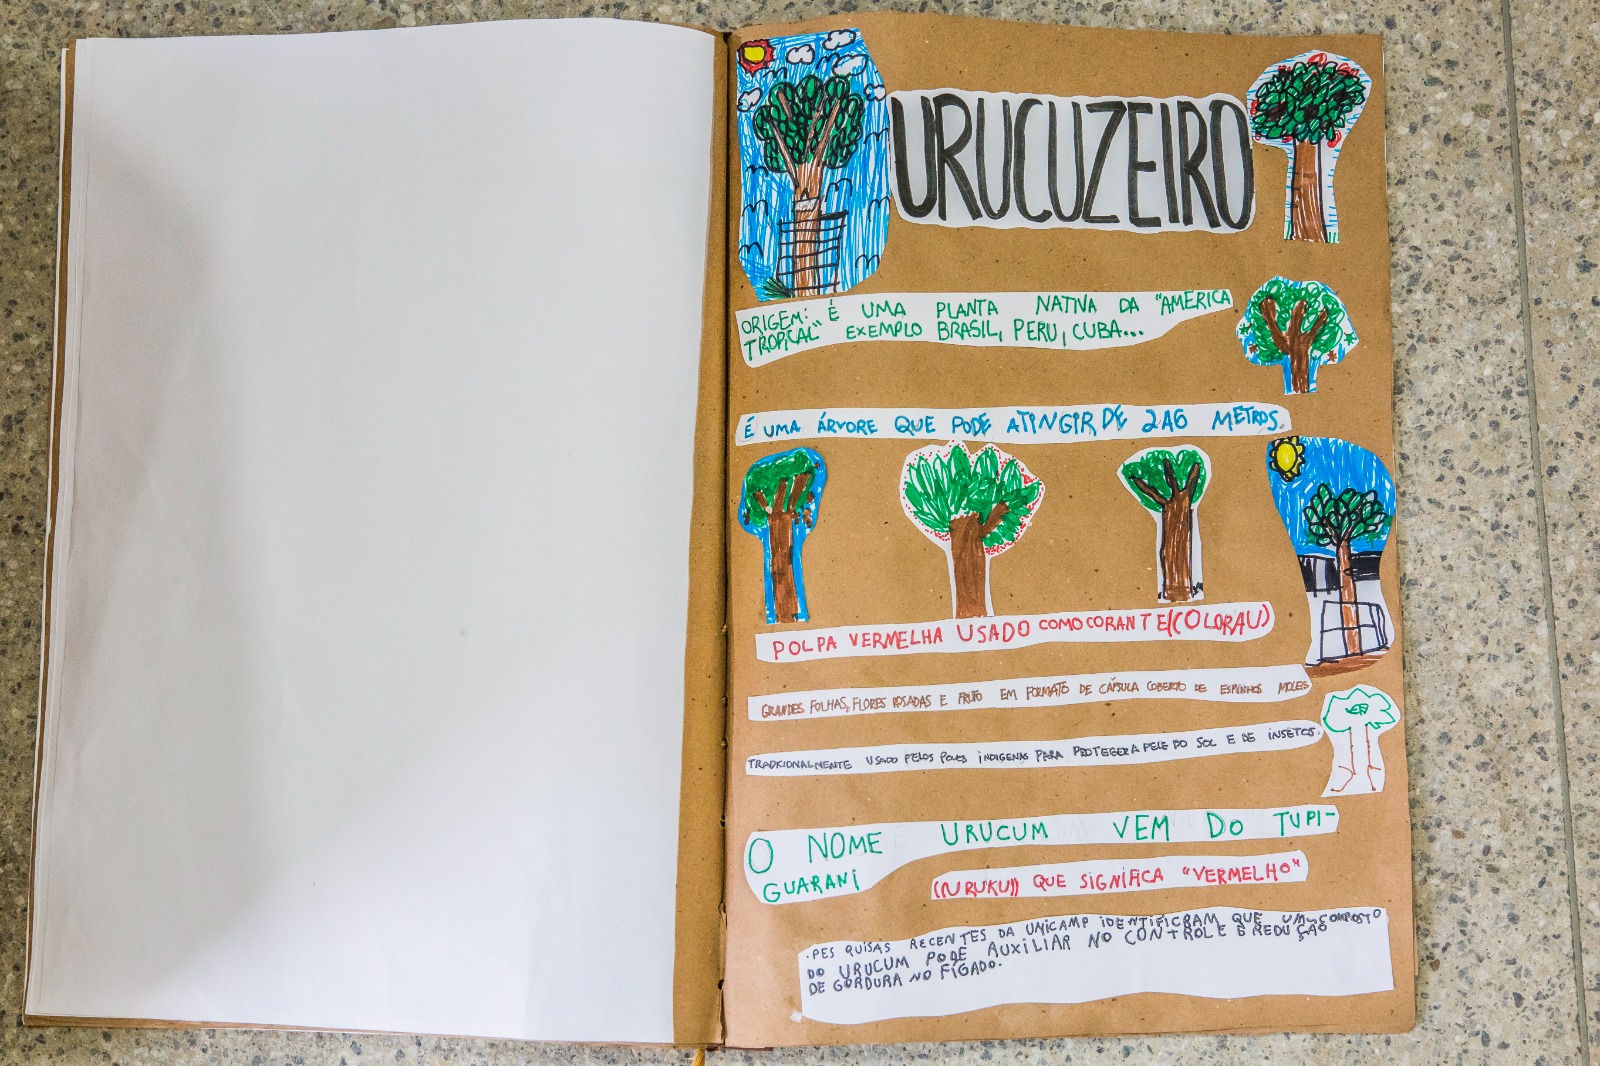 URUCUZEIRO
ORIGEM: É UMA PLANTA NATIVA DA "AMÉRICA
TROPICAL" EXEMPLO BRASIL, PERU, CUBA...
É UMA ÁRVORE QUE PODE ATINGIR DE 2 A 6 METROS.
POLPA VERMELHA USADO COMO CORANTE (COLORAU)
GRANDES FOLHAS, FLORES ROSADAS E FRUTO EM FORMATO DE CÁPSULA COBERTO DE ESPINHOS MOLES
TRADICIONALMENTE USADO PELOS POVOS INDIGENAS PARA PROTEGER A PELE DO SOL E DE INSETOS.
O NOME URUCUM VEM DO TUPI-
GUARANI
((URUKU)) QUE SIGNIFICA "VERMELHO"
·PESQUISAS RECENTES DA UNICAMP IDENTIFICRAM QUE UM COMPOSTO
DO URUCUM PODE AUXILIAR NO CONTROLE E REDUÇÃO
DE GORDURA NO FÍGADO.